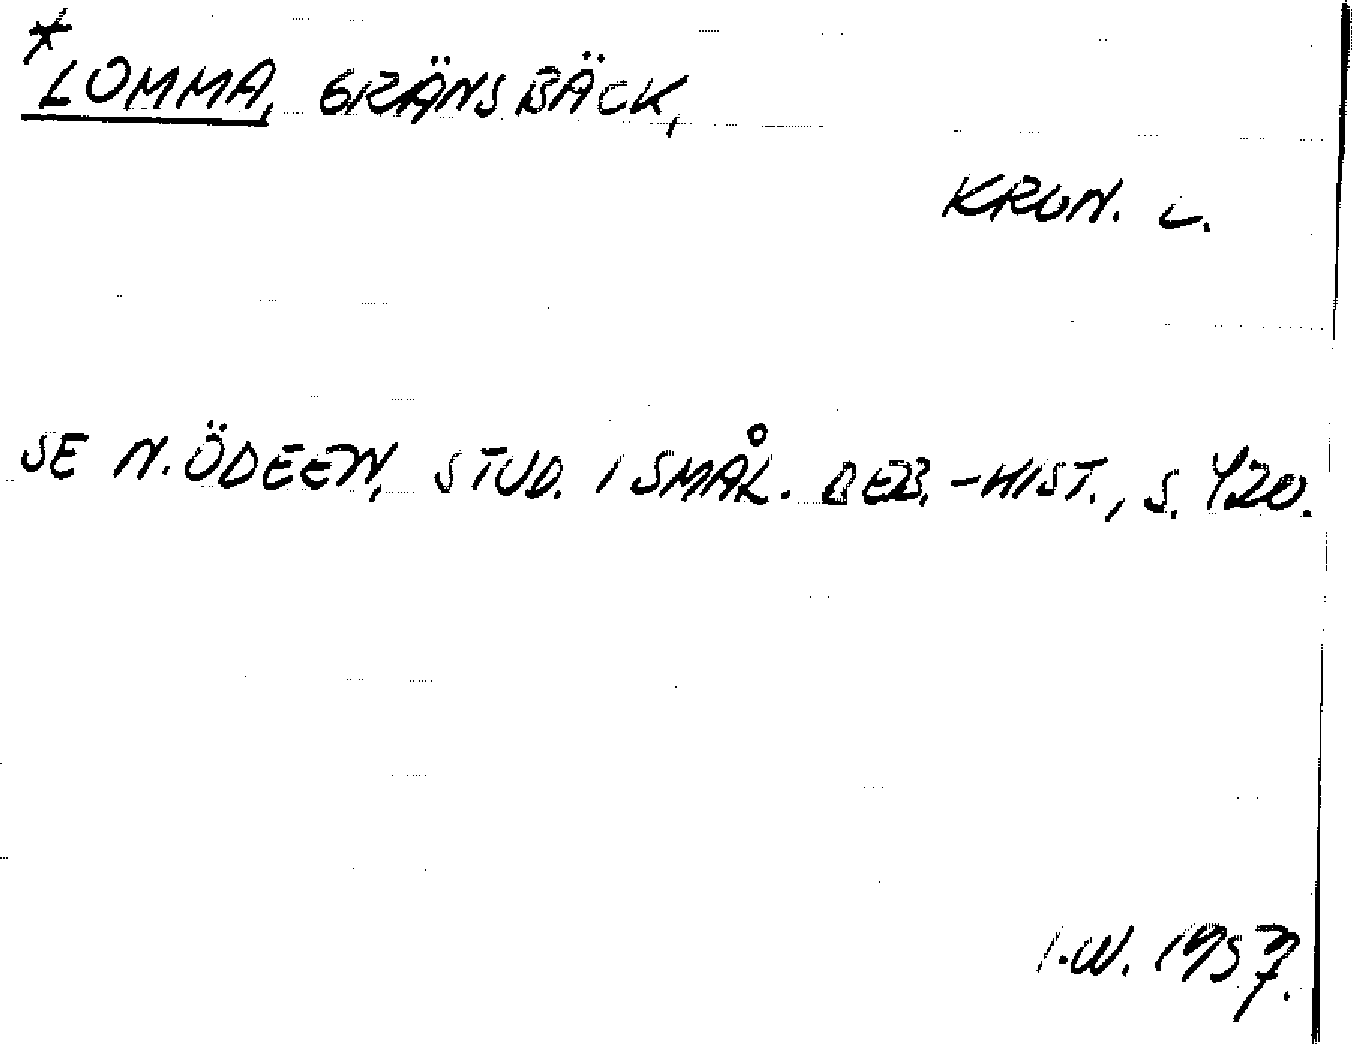 *LOMMA, GRÄNSBÄCK,
KRON. L.
SE N. ÖDEEN, STUD. I SMÅL. BEB.-HIST., S. 420.
I.W. 1957.